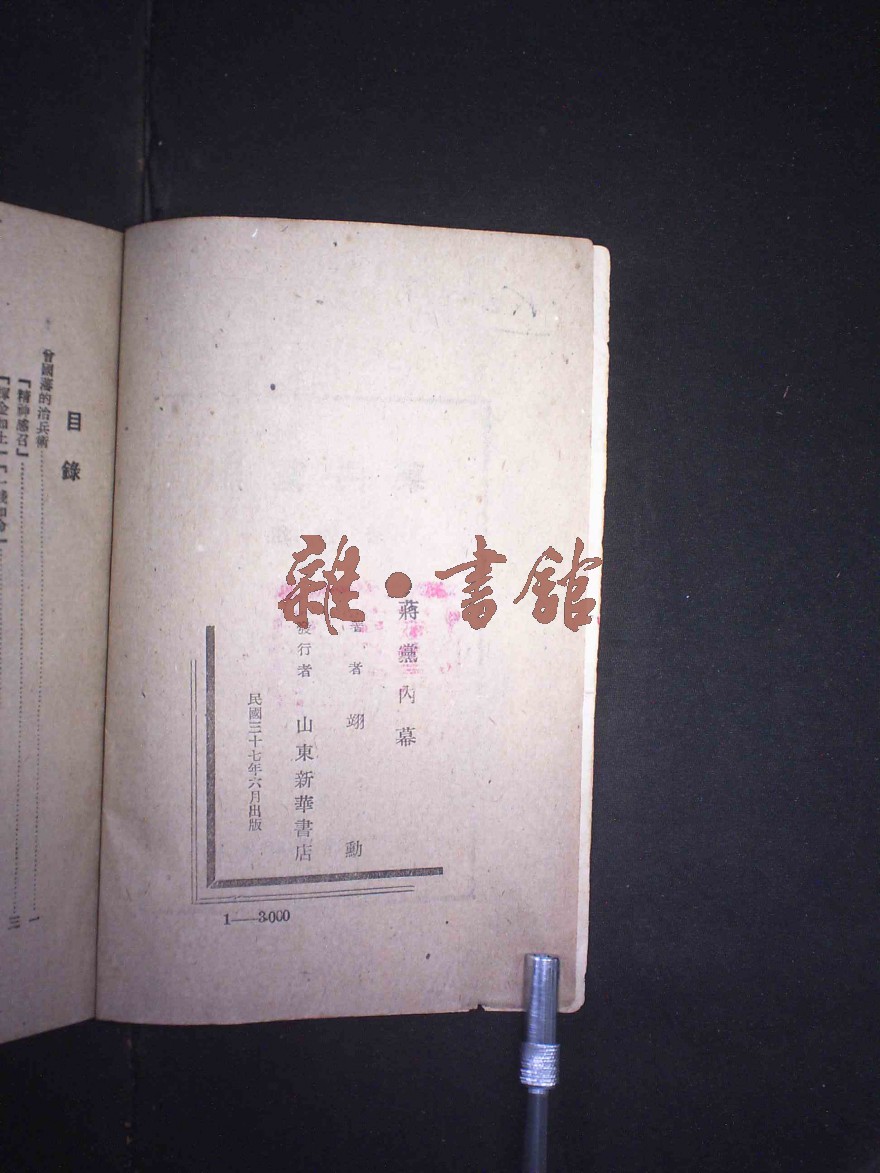 雜·書館
蔣黨內幕
著者 翊勳
發行者 山東新華書店
民國三十七年六月出版
1——3000
目錄
曾國藩的治兵術……1
「精神感召」……三